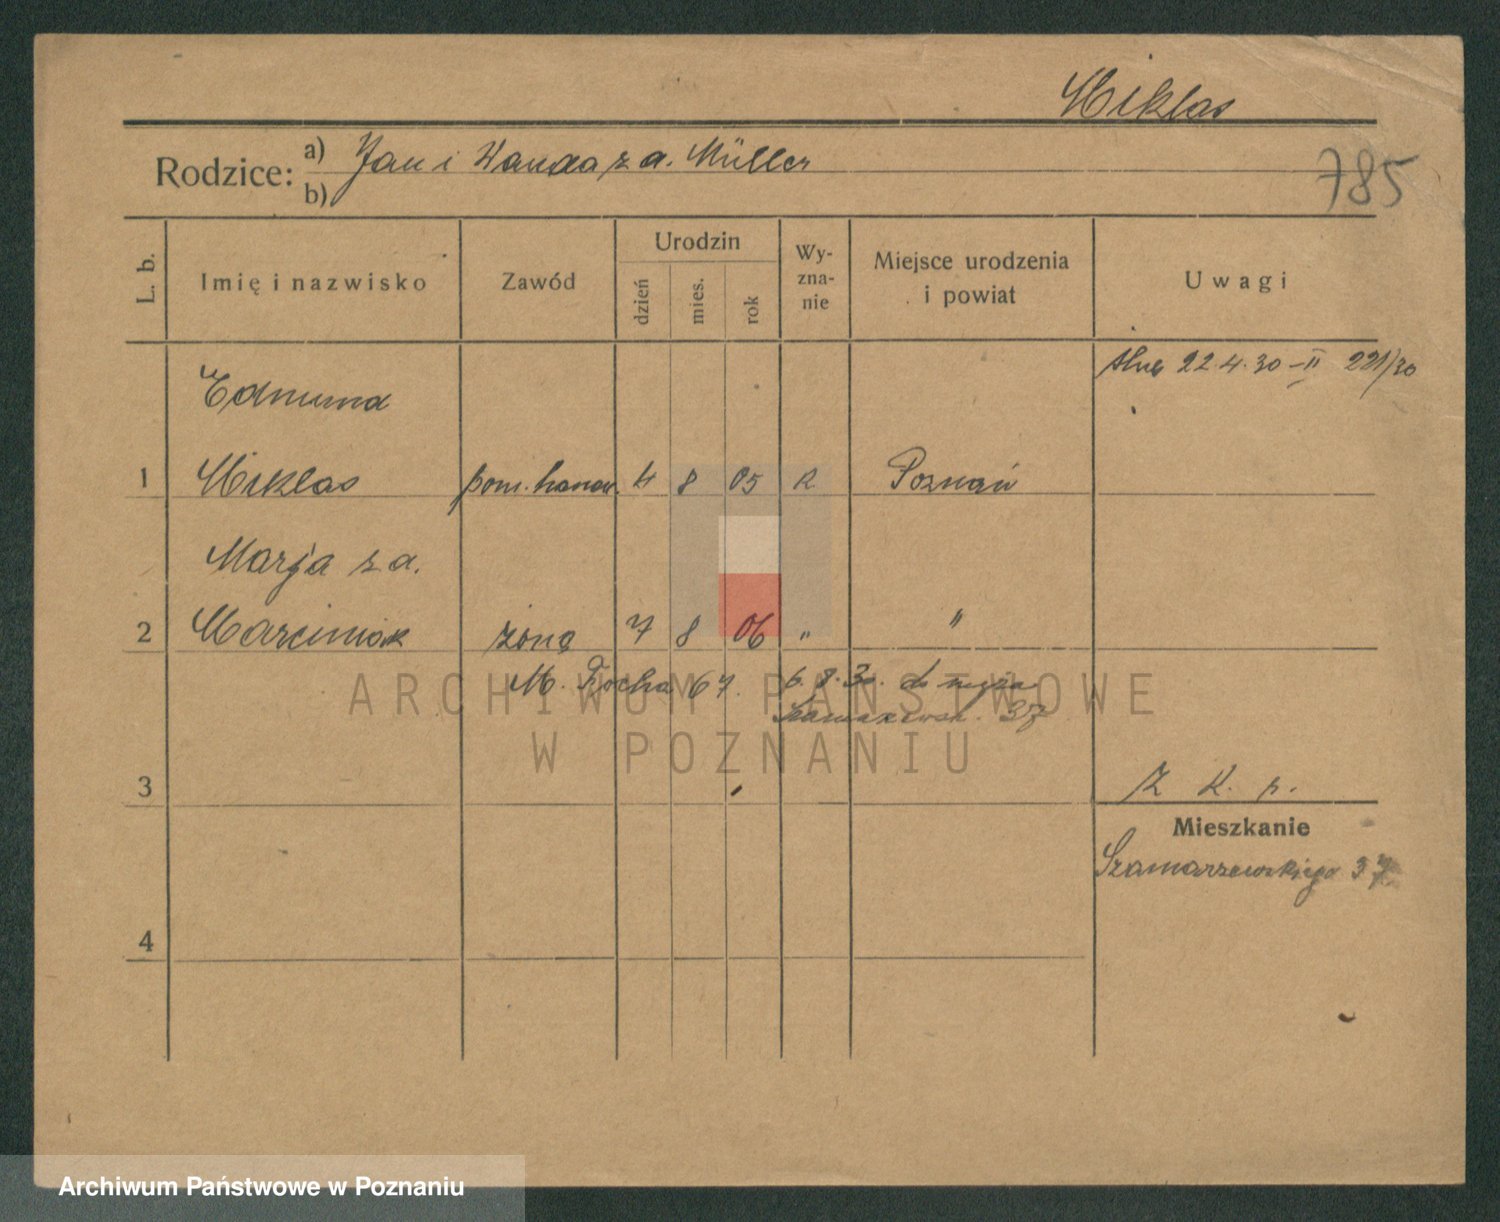 Miklas
Rodzice: a) Jan i Wanda z d. Müller
b)
785
L. b.
Imię i nazwisko
Zawód
Urodzin
dzień
mies.
rok
Wy-
zna-
nie
Miejsce urodzenia
i powiat
Uwagi
ślub 22.4.30 - II 221/30
Edmund
1 Miklas pom. handl. 4 8 05 R Poznań
Marja z d.
2 Marciniak żona 7 8 06 " "
M. Focha 67. 6.8.30. do męża
Szamarzewsk. 37
ARCHIWUM PAŃSTWOWE
W POZNANIU
3
Z K. p.
Mieszkanie
Szamarzewskiego 37
4
Archiwum Państwowe w Poznaniu